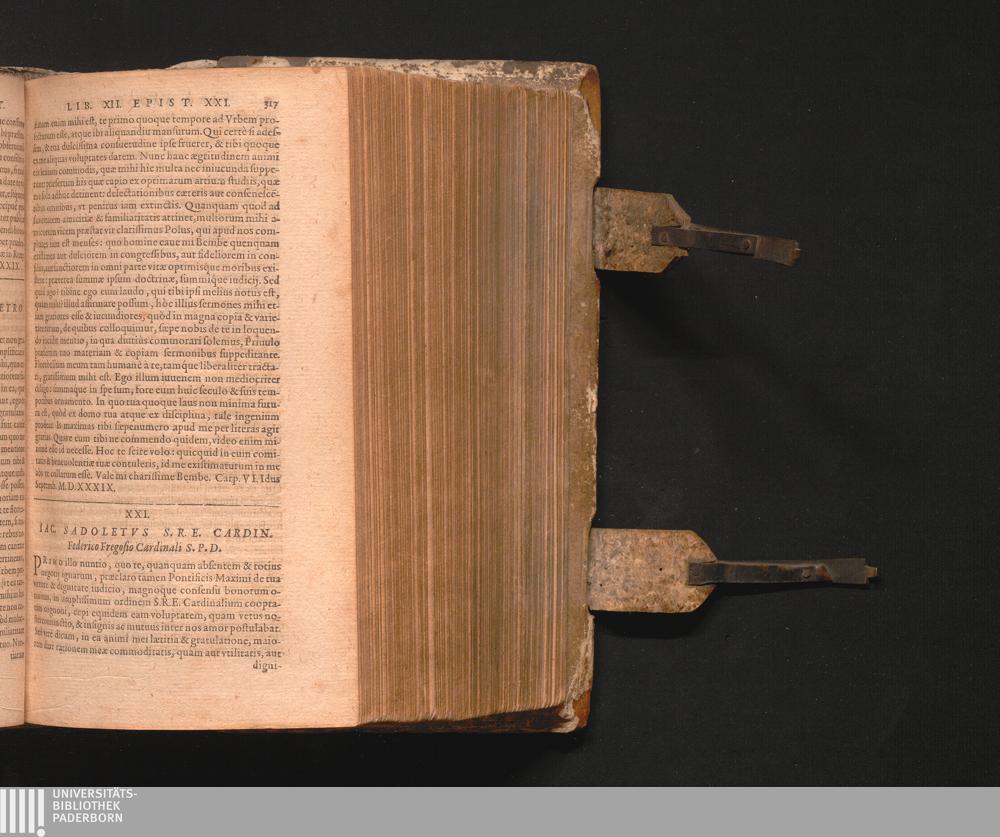 LIB. XII. EPIST. XXI. 317
enim mihi est, te primo quoque tempore ad Vrbem pro-
esse, atque ibi aliquandiu mansurum. Qui certè si ades-
& tua dulcissima consuetudine ipse fruerer, & tibi quoque
ex me aliquas voluptates darem. Nunc hanc ægritudinem animi
commodis, quæ mihi hic multa nec iniucunda suppe-
præsertim his quæ capio ex optimarum artium studiis, quæ
me sola adhuc detinent: delectationibus cæteris aut consenescē-
tibus omnibus, vt penitus iam extinctis. Quanquam quod ad
amicitiæ & familiaritatis attinet, multorum mihi a-
vicem præstat vir clarissimus Polus, qui apud nos com-
plures iam est menses: quo homine caue mi Bembe quenquam
aut dulciorem in congressibus, aut fideliorem in con-
aut sanctiorem in omni parte vitæ optimisque moribus exi-
præterea summæ ipsum doctrinæ, summique iudicij. Sed
quid ago? tibine ego eum laudo, qui tibi ipsi melius notus est,
quàm mihi? illud affirmare possum, hôc illius sermones mihi et-
iam gratiores esse & iucundiores, quòd in magna copia & varie-
tate rerum, de quibus colloquimur, sæpe nobis de te in loquen-
do incidit mentio, in qua diutius commorari solemus, Priuulo
tuo materiam & copiam sermonibus suppeditante.
meum tam humanè à te, tamq́ue liberaliter tracta-
ri, gratissimum mihi est. Ego illum iuuenem non mediocriter
diligo: summaque in spe sum, fore eum huic seculo & suis tem-
poribus ornamento. In quo tua quoque laus non minima futu-
ra est, quòd ex domo tua atque ex disciplina, tale ingenium
prodeat. Is maximas tibi sæpenumero apud me per literas agit
gratias. Quare eum tibi ne commendo quidem, video enim mi-
nimè esse id necesse. Hoc te scire volo: quicquid in eum comi-
tatis & beneuolentiæ tuæ contuleris, id me existimaturum in me
abs te collatum esse. Vale mi charissime Bembe. Carp. VI. Idus
Septemb. M.D.XXXIX.
XXI.
IAC. SADOLETVS S.R.E. CARDIN.
Federico Fregosio Cardinali S. P. D.
PRIMO illo nuntio, quo te, quanquam absentem & totius
negotij ignarum, præclaro tamen Pontificis Maximi de tua
virtute & dignitate iudicio, magnoque consensu bonorum o-
mnium, in amplissimum ordinem S.R.E. Cardinalium coopta-
tum cognoui, cepi equidem eam voluptatem, quam vetus no-
stra coniunctio, & insignis ac mutuus inter nos amor postulabat.
Sed verè dicam, in ea animi mei lætitia & gratulatione, maio-
rem duxi rationem meæ commoditatis, quàm aut vtilitatis, aut
digni-
UNIVERSITÄTS-
BIBLIOTHEK
PADERBORN